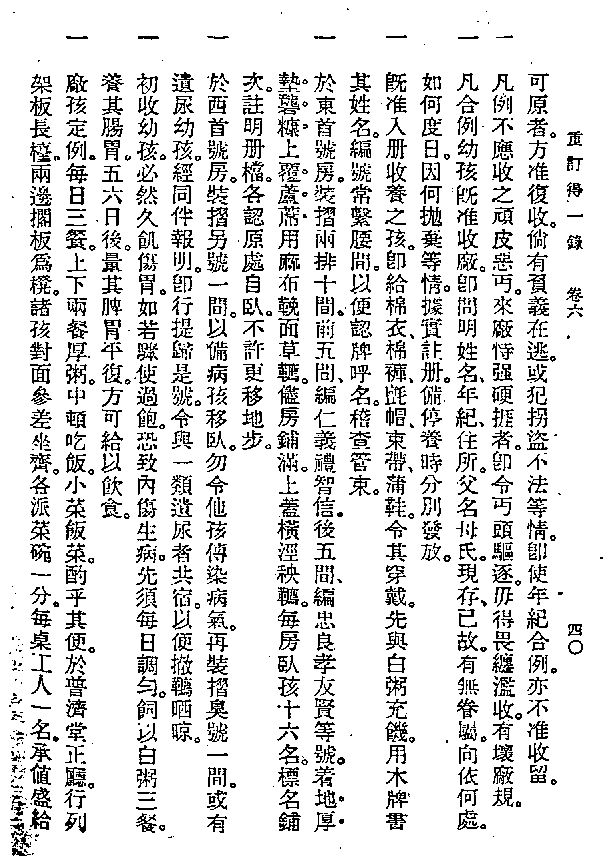 重訂得一錄 卷六 四〇
可原者方准復收倘有預義在逃或犯拐盜不法等情卽使年紀合例亦不准收留
一 凡例不應收之頑皮惡丐來廠恃强硬捱者卽令丐頭驅逐毋得畏纏濫收有壞廠規
一 凡合例幼孩旣准收廠卽問明姓名年紀住所父名母氏現存已故有無眷屬向依何處
如何度日因何拋棄等情據實註册備停養時分別發放
一 旣准入册收養之孩卽給棉衣棉褲氈帽束帶蒲鞋令其穿戴先與白粥充饑用木牌書
其姓名編號常繫腰間以便認牌呼名稽查管束
一 於東首號房裝摺兩排十間前五間編仁義禮智信後五間編忠良孝友賢等號着地厚
墊礱糠上覆蘆蓆用麻布輓面草韉儘房鋪滿上蓋橫涇秧韉每房臥孩十六名標名鋪
次註明册檔各認原處自臥不許更移地步
一 於西首號房裝摺另號一間以備病孩移臥勿令他孩傳染病氣再裝摺臭號一間或有
遺尿幼孩經同伴報明卽行提歸是號令與一類遺尿者共宿以便撤韉晒晾
一 初收幼孩必然久飢傷胃如若驟使過飽恐致內傷生病先須每日調勻飼以白粥三餐
養其腸胃五六日後量其脾胃平復方可給以飲食
一 廠孩定例每日三餐上下兩餐厚粥中頓吃飯小菜飯菜酌乎其便於普濟堂正廳行列
架板長檯兩邊擱板爲櫈諸孩對面參差坐齊各派菜碗一分每桌工人一名承値盛給